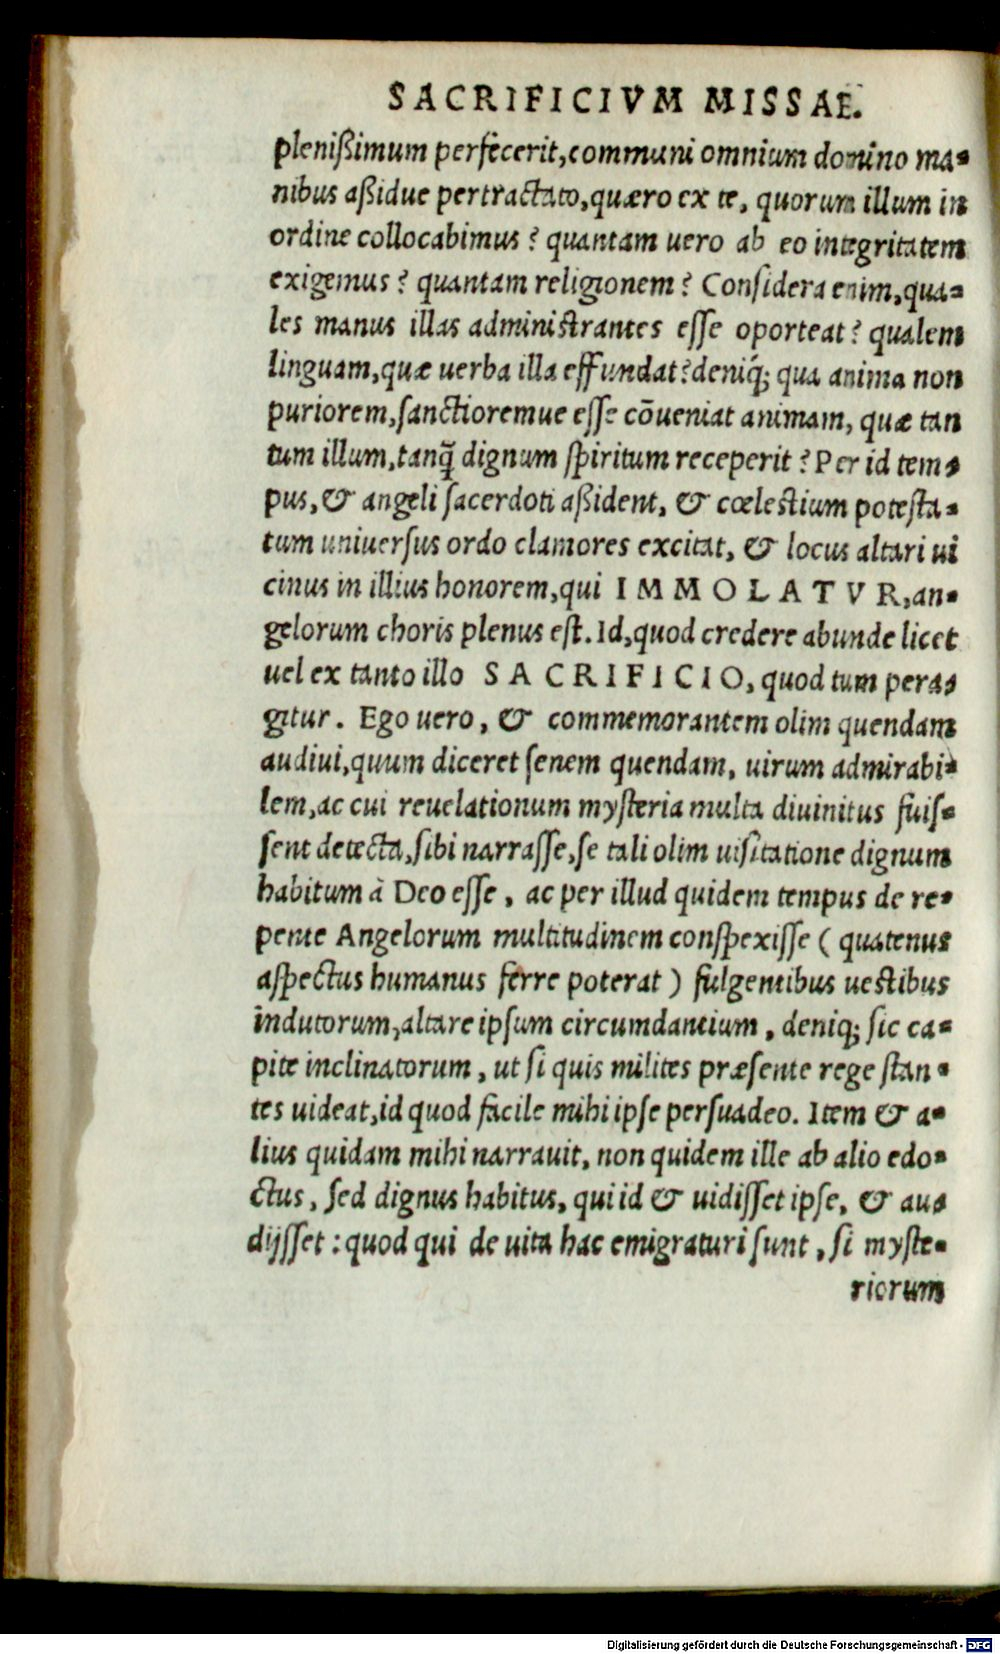 SACRIFICIVM MISSAE.
plenißimum perfecerit, communi omnium domino ma-
nibus aßidue pertractato, quæro ex te, quorum illum in
ordine collocabimus? quantam uero ab eo integritatem
exigemus? quantam religionem? Considera enim, qua-
les manus illas administrantes esse oporteat? qualem
linguam, quæ uerba illa effundat? deniq́; qua anima non
puriorem, sanctioremue esse cōueniat animam, quæ tan
tum illum, tanq̃ dignum spiritum receperit? Per id tem-
pus, & angeli sacerdoti aßident, & cœlestium potesta-
tum uniuersus ordo clamores excitat, & locus altari ui
cinus in illius honorem, qui IMMOLATVR, an-
gelorum choris plenus est. Id, quod credere abunde licet
uel ex tanto illo SACRIFICIO, quod tum pera-
gitur. Ego uero, & commemorantem olim quendam
audiui, quum diceret senem quendam, uirum admirabi-
lem, ac cui reuelationum mysteria multa diuinitus fuis-
sent detecta, sibi narrasse, se tali olim uisitatione dignum
habitum à Deo esse, ac per illud quidem tempus de re-
pente Angelorum multitudinem conspexisse (quatenus
aspectus humanus ferre poterat) fulgentibus uestibus
indutorum, altare ipsum circumdantium, deniq; sic ca-
pite inclinatorum, ut si quis milites præsente rege stan-
tes uideat, id quod facile mihi ipse persuadeo. Item & a-
lius quidam mihi narrauit, non quidem ille ab alio edo-
ctus, sed dignus habitus, qui id & uidisset ipse, & au-
dijsset: quod qui de uita hac emigraturi sunt, si myste-
riorum
Digitalisierung gefördert durch die Deutsche Forschungsgemeinschaft - DFG